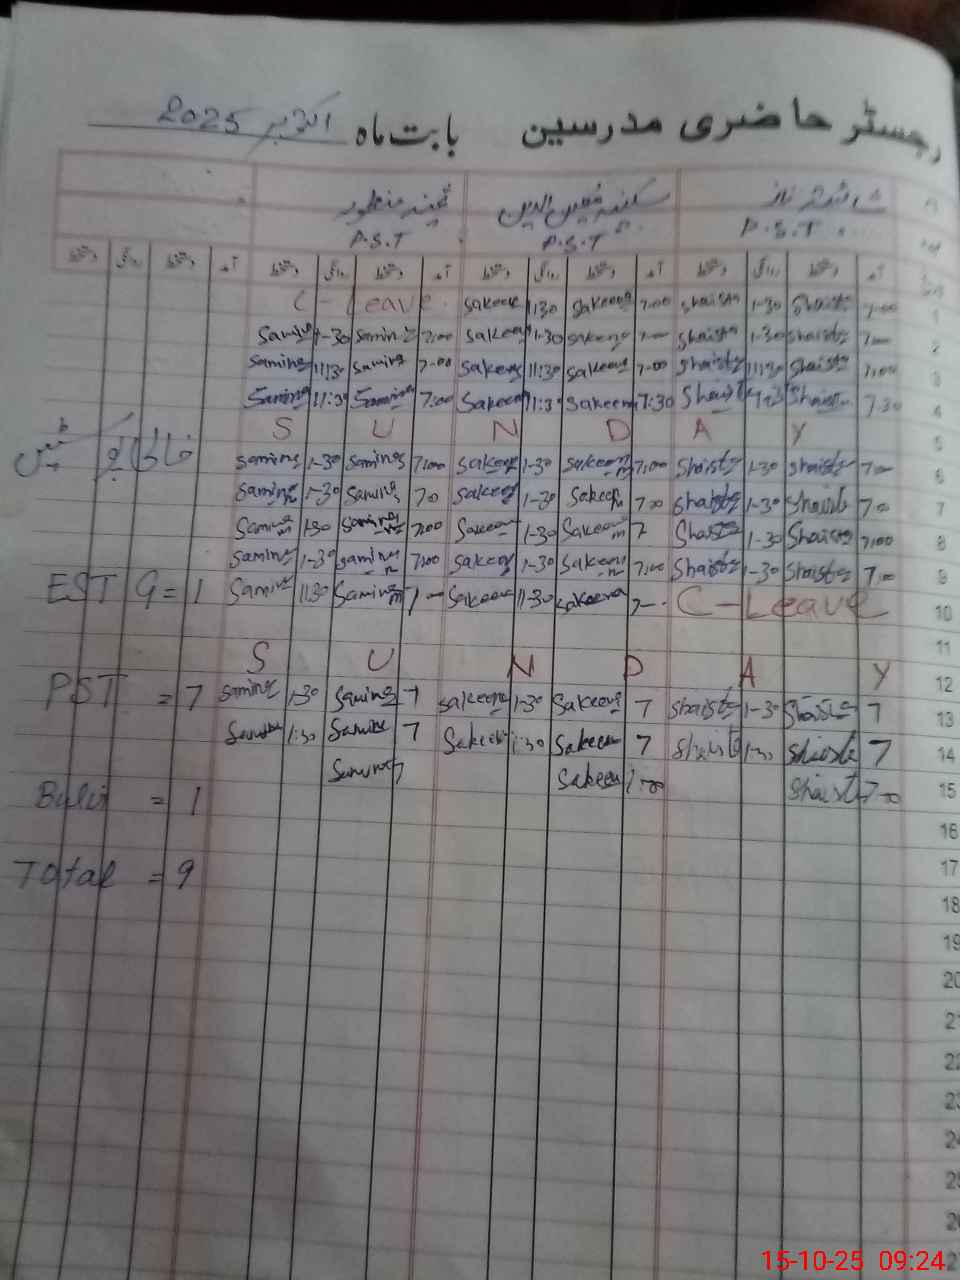 رجسٹر حاضری مدرسین بابت ماہ اکتوبر 2025
شائستہ ناز سکینہ معین الدین ثمینہ منظور
P.S.T P.S.T P.S.T
آمد دستخط روانگی دستخط آمد دستخط روانگی دستخط آمد دستخط روانگی دستخط آمد دستخط روانگی دستخط
C-Leave. Sakeena 1:30 Sakeena 7:00 Shaista 1-30 Shaista 7-00 1
Samina 1-30 Samina 7:00 Sakeena 1-30 Sakeena 7-00 Shaista 1-30 Shaista 7-00 2
Samina 11:30 Samina 7-00 Sakeena 11:30 Sakeena 7-00 Shaista 11:30 Shaista 7:00 3
Samina 11:30 Samina 7:00 Sakeena 11:30 Sakeena 7:30 Shaista Shaista 7:30 4
S U N D A Y 5
Samina 1-30 Samina 7:00 Sakeena 1-30 Sakeena 7:00 Shaista 1-30 Shaista 7-00 6
Samina 1-30 Samina 70 Sakeena 1-30 Sakeena 7-00 Shaista 1-30 Shaista 7-0 7
Samina 1-30 Samina 7:00 Sakeena 1-30 Sakeena 7 Shaista 1-30 Shaista 7:00 8
Samina 1-30 Samina 7:00 Sakeena 1-30 Sakeena 7:00 Shaista 1-30 Shaista 7:00 9
EST 9 = 1 Samina 11:30 Samina Sakeena 11-30 Sakeena 7-- C-Leave 10
11
S U N D A Y 12
PST = 7 Samina 1-30 Samina 7 Sakeena 1-30 Sakeena 7 Shaista 1-30 Shaista 7 13
Samina 1:30 Samina 7 Sakeena 1:30 Sakeena 7 Shaista 1-30 Shaista 7 14
Samina 7 Sakeena 7:00 Shaista 7-00 15
= 1
16
Total = 9 17
18
19
20
21
22
23
24
25
26
27
15-10-25 09:24